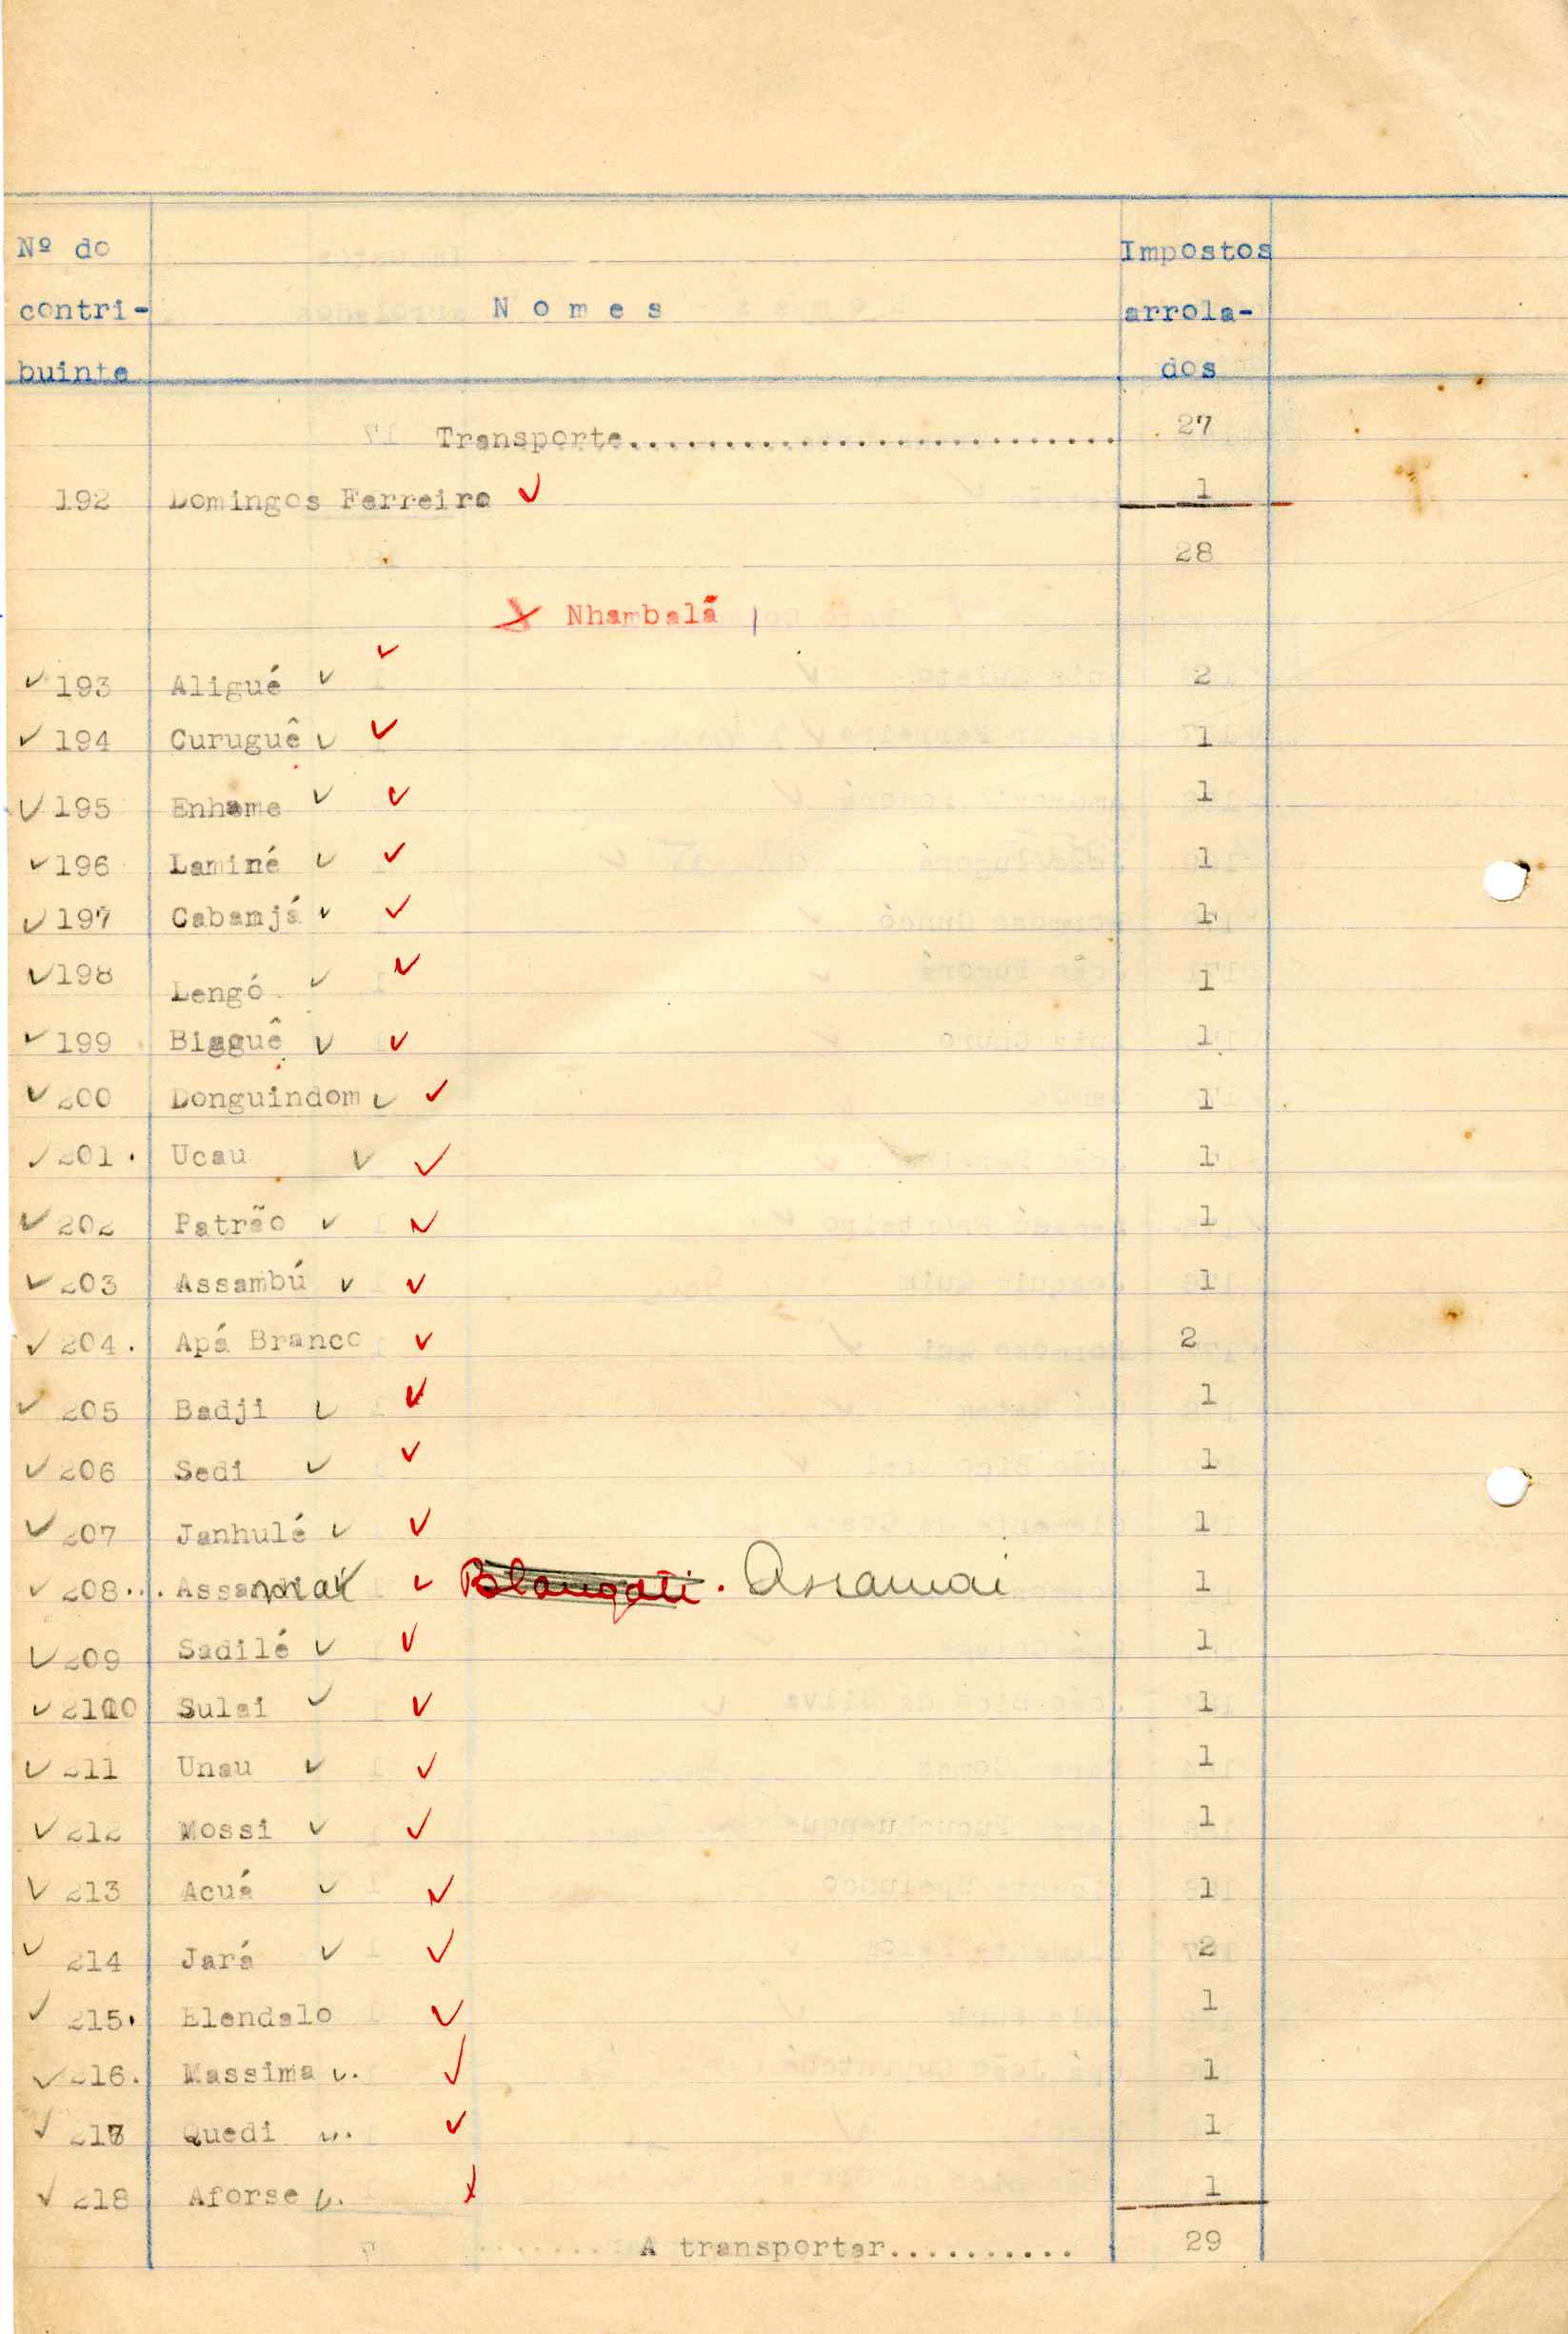 Nº do Impostos
contri- N o m e s arrola-
buinte dos
Transporte.............................. 27
192 Domingos Ferreira 1
28
Nhambalã
193 Aligué 2
194 Curuguê 1
195 Enhame 1
196 Laminé 1
197 Cabamjá 1
198 Lengó 1
199 Biaguê 1
200 Donguindom 1
201. Ucau 1
202 Patrão 1
203 Assambú 1
204. Apá Branco 2
205 Badji 1
206 Sedi 1
207 Janhulé 1
208... Assamai 1
209 Sadilé 1
210 Sulai 1
211 Unau 1
212 Mossi 1
213 Acuá 1
214 Jará 2
215. Elendalo 1
216. Massima 1
217 Quedi 1
218 Aforse 1
A transportar.......... 29